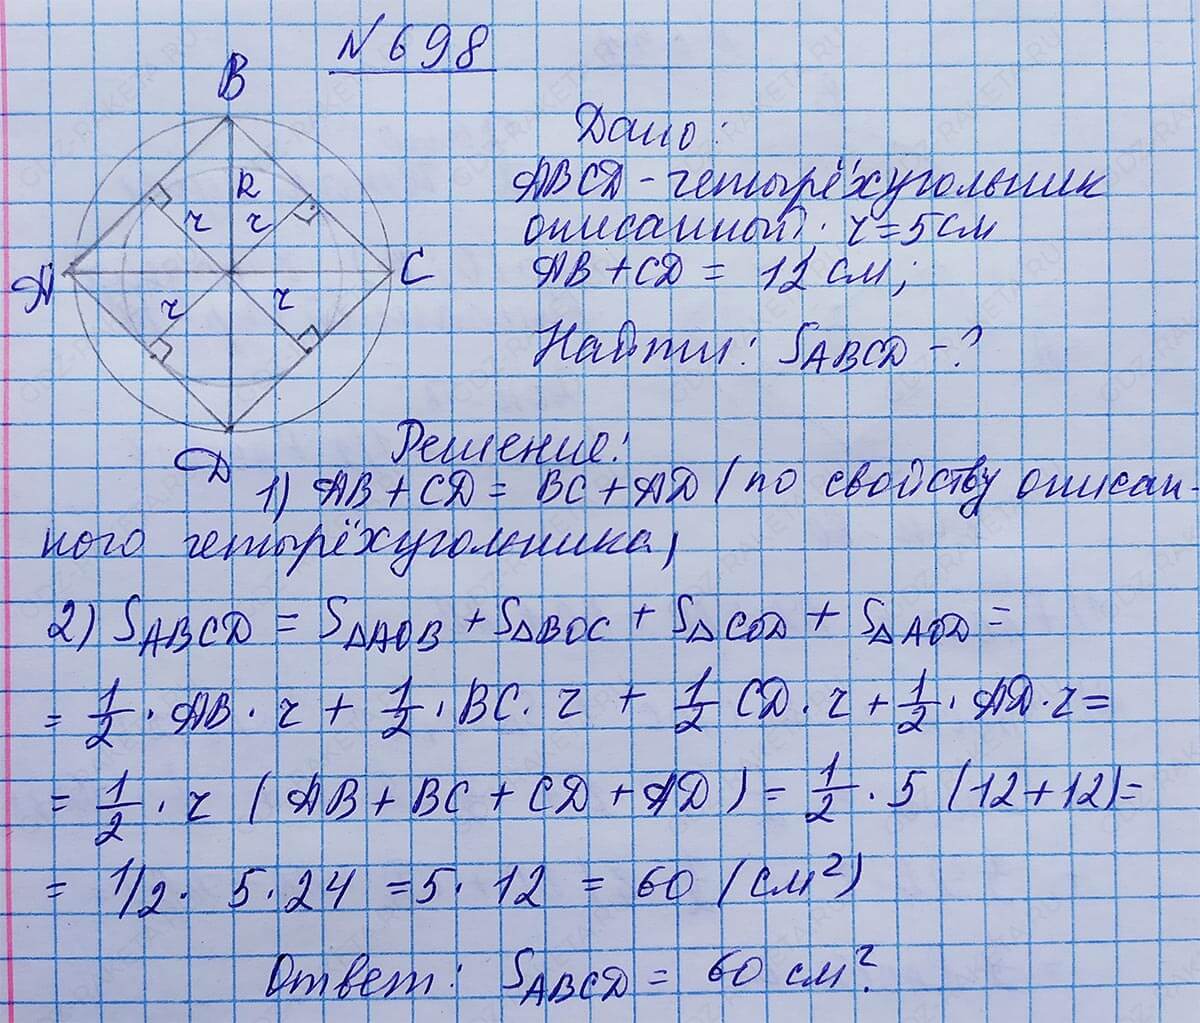 №698
B
R
r r
A C
r r
D
Дано:
ABCD - четырёхугольник
описанный; r = 5 см
AB + CD = 12 см;
Найти: SABCD - ?
Решение:
1) AB + CD = BC + AD (по свойству описан-
ного четырёхугольника)
2) SABCD = S△AOB + S△BOC + S△COD + S△AOD =
= 1/2 · AB · r + 1/2 · BC · r + 1/2 CD · r + 1/2 · AD · r =
= 1/2 · r (AB + BC + CD + AD) = 1/2 · 5 (12 + 12) =
= 1/2 · 5 · 24 = 5 · 12 = 60 (см²)
Ответ: SABCD = 60 см².